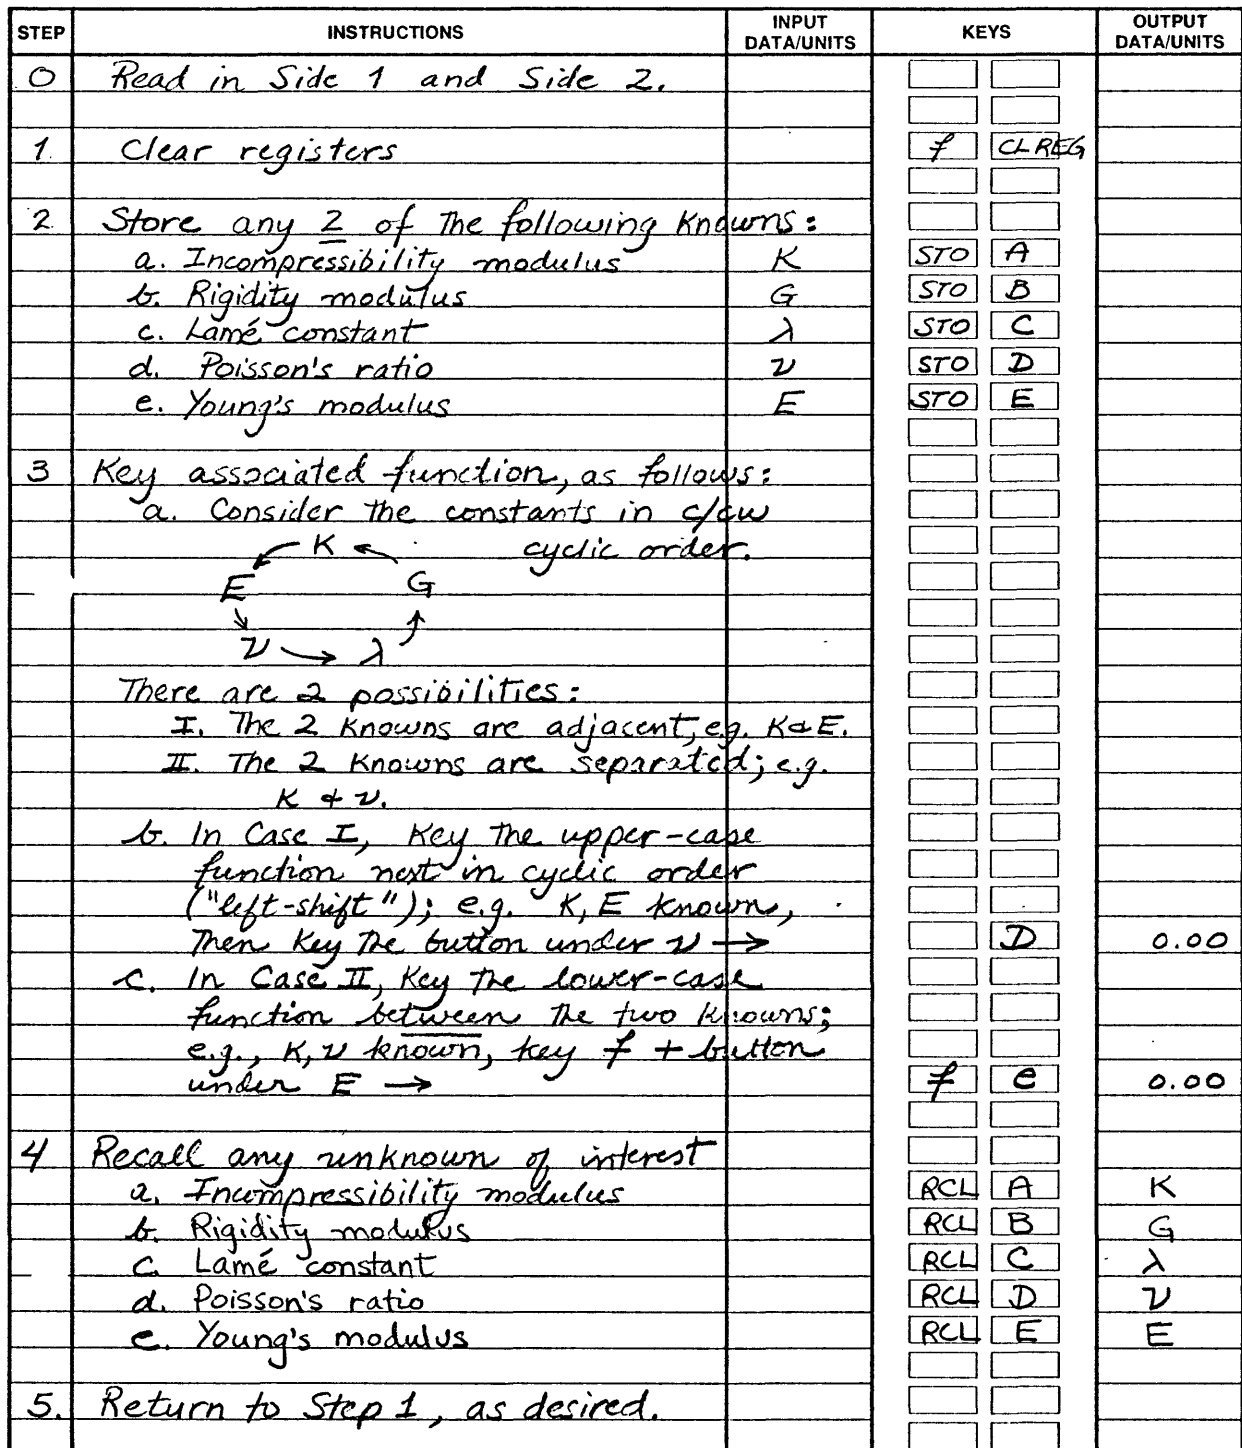 STEP INSTRUCTIONS INPUT DATA/UNITS KEYS OUTPUT DATA/UNITS
0 Read in Side 1 and Side 2.
1. Clear registers f CL REG
2 Store any 2 of the following knowns:
a. Incompressibility modulus K STO A
b. Rigidity modulus G STO B
c. Lamé constant λ STO C
d. Poisson's ratio ν STO D
e. Young's modulus E STO E
3 Key associated function, as follows:
a. Consider the constants in c/cw
K cyclic order.
E G
ν λ
There are 2 possibilities:
I. The 2 knowns are adjacent, e.g. K & E.
II. The 2 knowns are separated; e.g.
K & ν.
b. In Case I, Key the upper-case
function next in cyclic order
("left-shift"); e.g. K, E known,
Then Key the button under ν → D 0.00
c. In Case II, Key the lower-case
function between the two knowns;
e.g., K, ν known, key f + button
under E → f e 0.00
4 Recall any unknown of interest
a. Incompressibility modulus RCL A K
b. Rigidity modulus RCL B G
c. Lamé constant RCL C λ
d. Poisson's ratio RCL D ν
e. Young's modulus RCL E E
5. Return to Step 1, as desired.